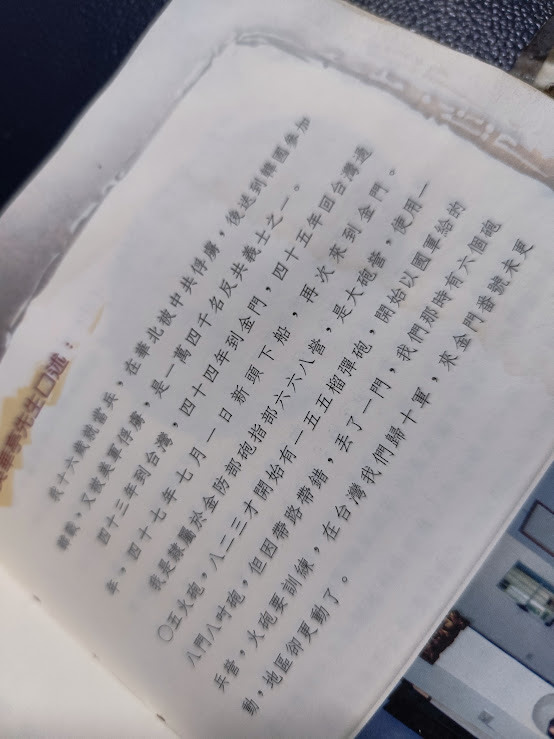 先生口述：
我十六歲就當兵，在華北被中共俘虜，後送到韓國參加
韓戰，又被美軍俘虜，是一萬四千名反共義士之一。
四十三年到台灣，四十四年到金門，四十五年回台灣過
年，四十七年七月一日新頭下船，再次來到金門。
我是隸屬於金防部砲指部六六八營，是大砲營，使用一
〇五火砲，八二三才開始有一五五榴彈砲，開始以國軍給的
八門八吋砲，但因帶路帶錯，丟了一門，我們那時有六個砲
兵營，火砲要訓練，在台灣我們歸十軍，來金門番號未更
動，地區卻更動了。